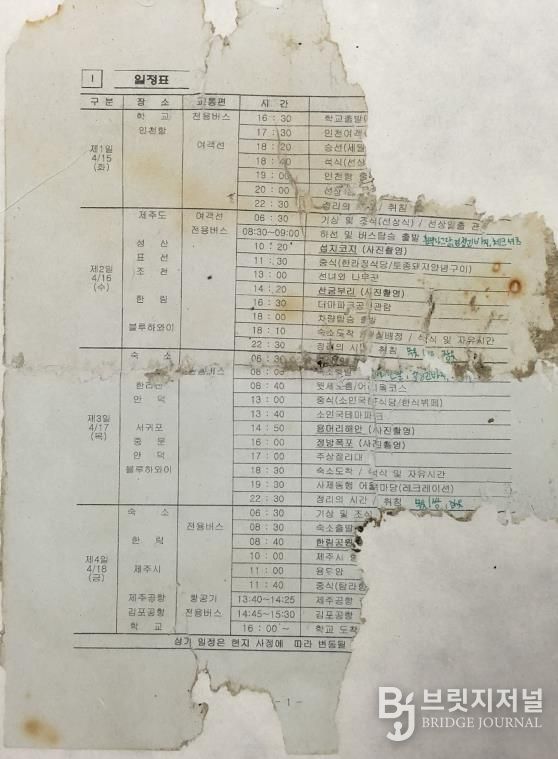 I 일정표
구 분 장 소 교통편 시 간
제1일 4/15 (화)
학 교 전용버스 16 : 30 학교출발
인천항 17 : 30 인천여객
여객선 18 : 20 승선(세월
18 : 40 석식(선상
19 : 00 인천항 출
20 : 00 선상
22 : 30 정리의 / 취침
제2일 4/16 (수)
제주도 여객선 06 : 30 기상 및 조식(선상식) / 선상일출 관
전용버스 08:30~09:00 하선 및 버스탑승 출발
성 산 10 : 20 섭지코지 (사진촬영)
표 선 11 : 30 중식(한라정식당/토종돼지양념구이)
조 천 13 : 00 선녀와 나무꾼
14 : 20 산굼부리 (사진촬영)
한 림 16 : 30 더마파크공연관람
18 : 00 차량탑승 출발
블루하와이 18 : 10 숙소도착 / 실배정 / 석식 및 자유시간
22 : 30 정리의 시간 / 취침
제3일 4/17 (목)
숙 소 06 : 30
08 : 00 숙소출발
한라산 08 : 40 윗세오름/어리목코스
안 덕 13 : 00 중식(소인국 식당/한식뷔페)
13 : 40 소인국테마파크
서귀포 14 : 50 용머리해안 (사진촬영)
중 문 16 : 00 정방폭포 (사진촬영)
안 덕 17 : 00 주상절리대
블루하와이 18 : 30 숙소도착 / 석식 및 자유시간
19 : 30 사제동행 어울마당(레크레이션)
22 : 30 정리의 시간 / 취침
제4일 4/18 (금)
숙 소 06 : 30 기상 및 조식
전용버스 08 : 30 숙소출발
한 림 08 : 40 한림공원
10 : 00 제주시
제주시 11 : 00 용두암
11 : 40 중식(탐라
제주공항 항공기 13:40~14:25 제주공항
김포공항 전용버스 14:45~15:30 김포공항
학 교 16 : 00 ~ 학교 도착
상기 일정은 현지 사정에 따라 변동될
- 1 -
BJ 브릿지저널
BRIDGE JOURNAL